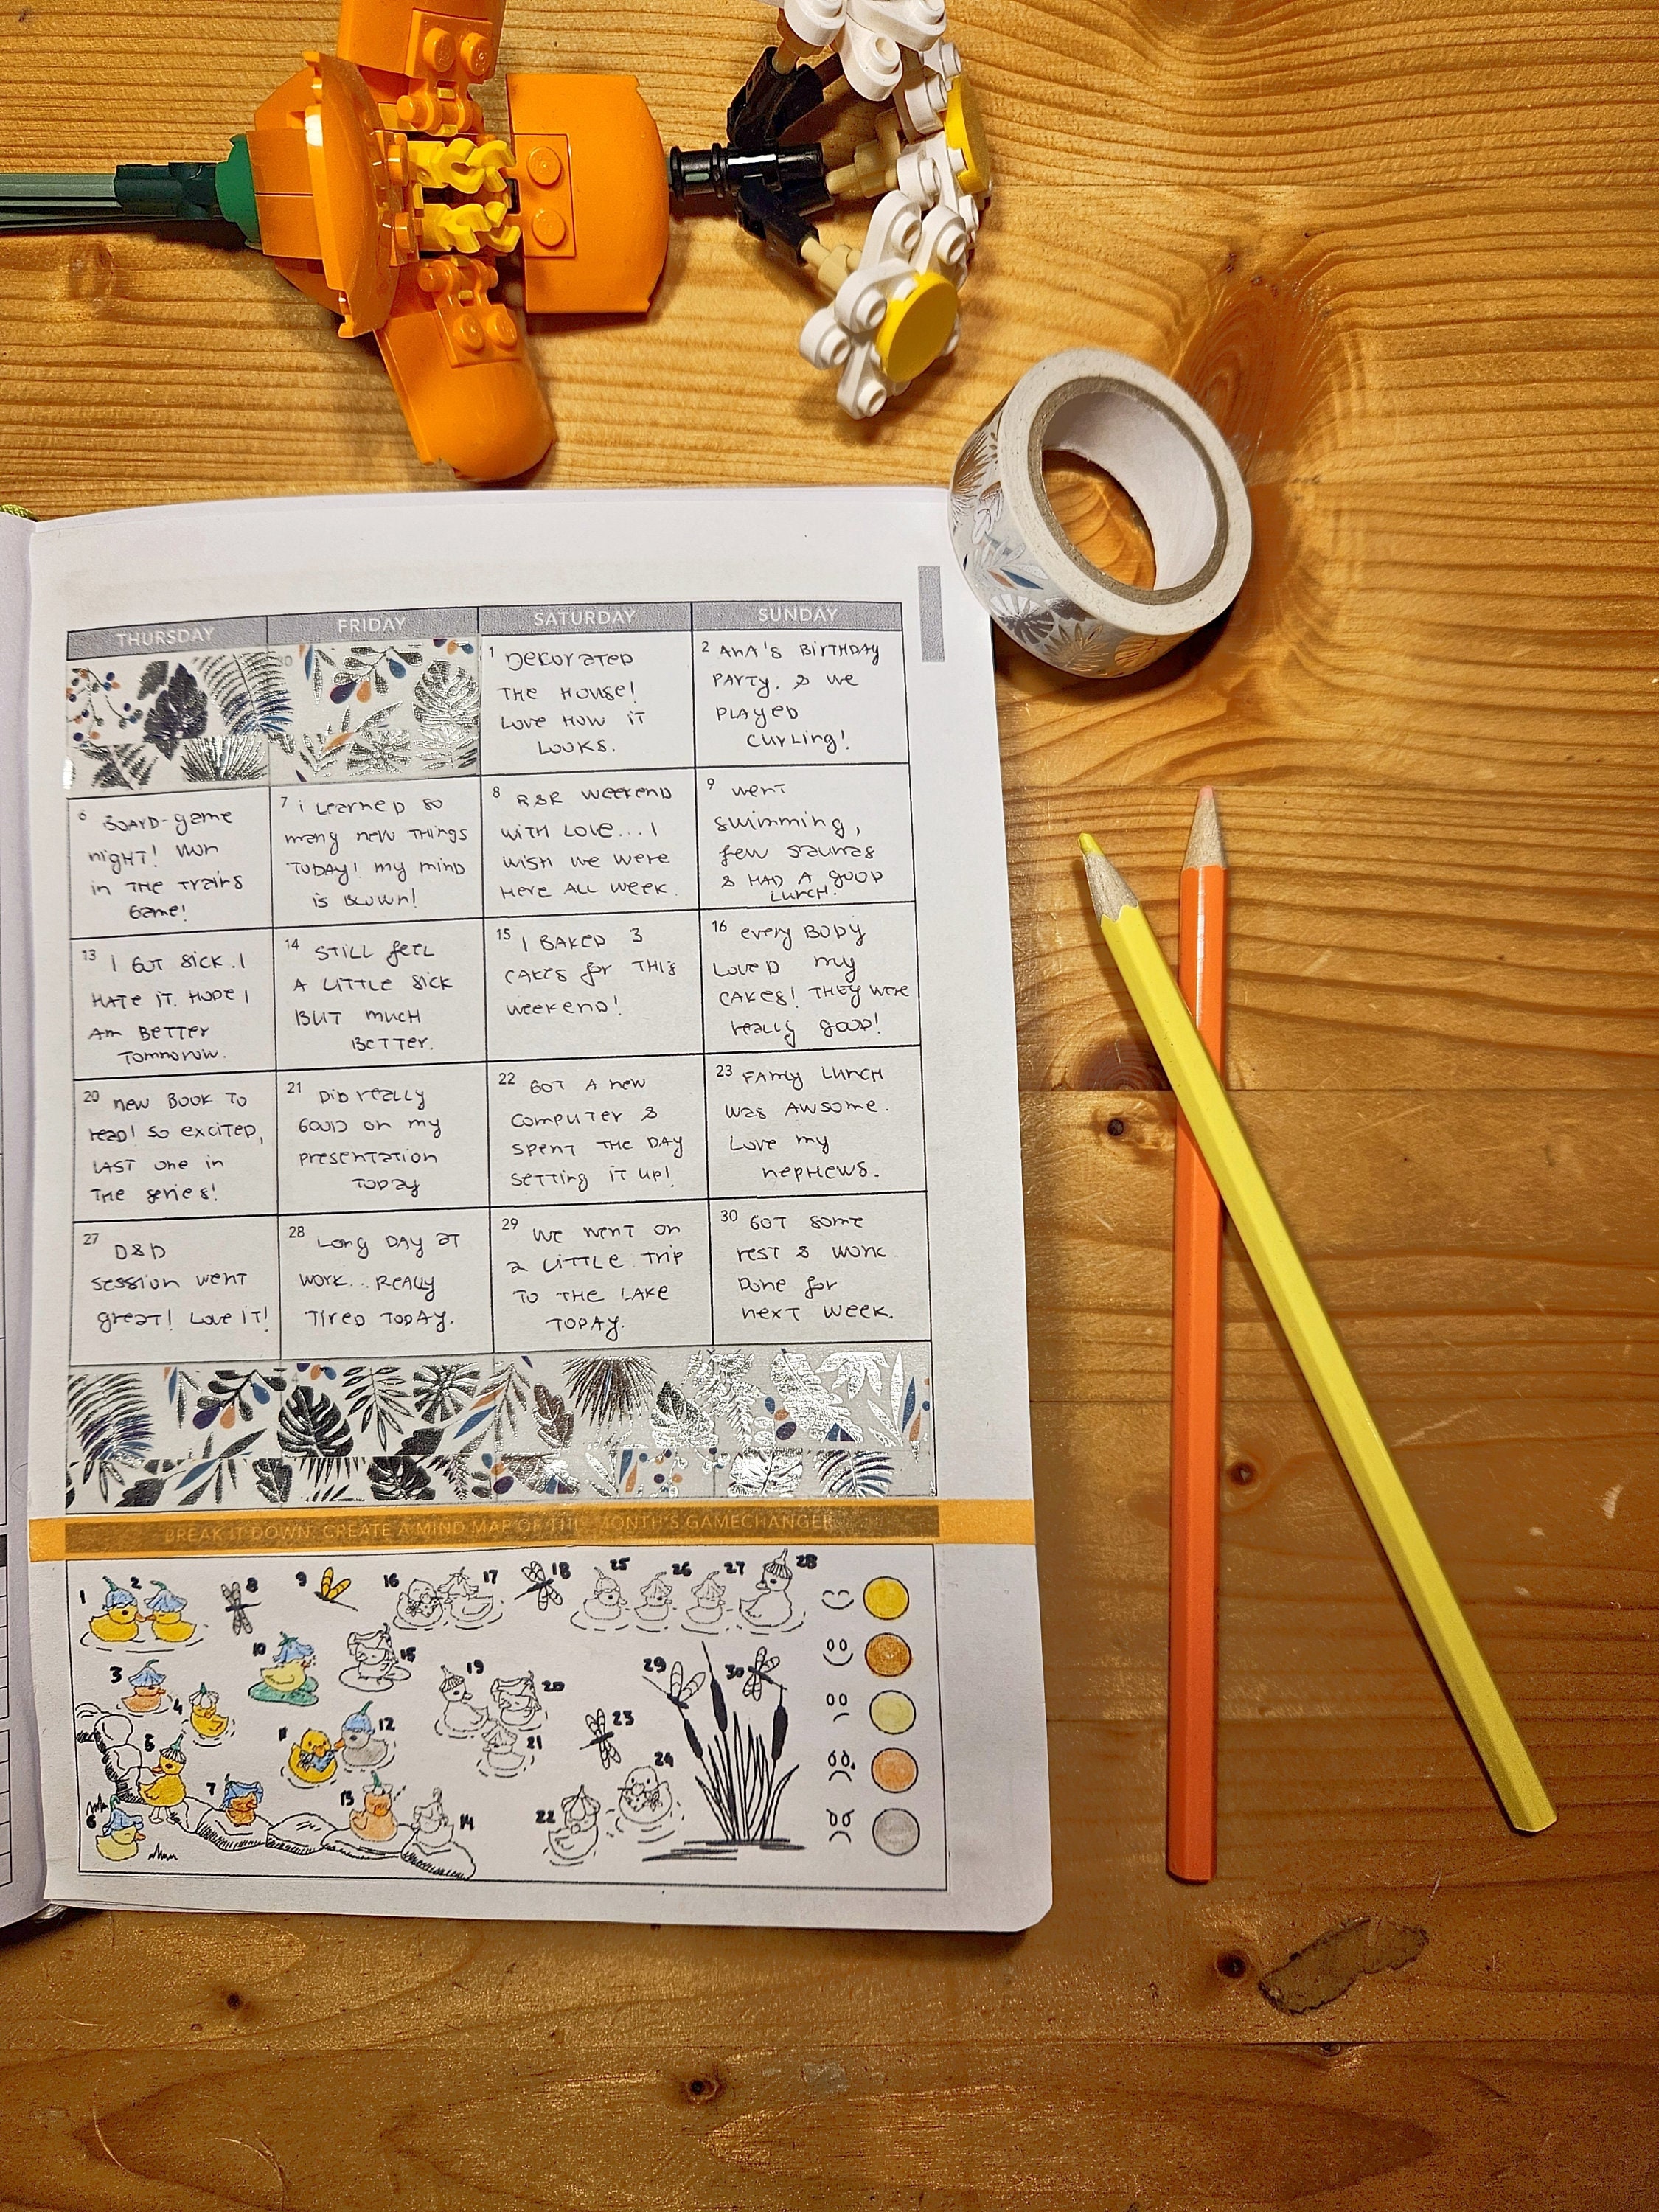 THURSDAY FRIDAY SATURDAY SUNDAY
30
1 DECORATED
THE HOUSE!
LOVE HOW IT
LOOKS.
2 ANA'S BIRTHDAY
PARTY. & WE
PLAYED
CURLING!
6 BOARD-game
nigHT! Won
in THE Trains
Game!
7 i Learned so
many new THings
TODAY! my mind
is BLOWN!
8 R&R weekend
WITH LOVE... I
WISH we were
Here ALL week.
9 went
swimming,
few saunas
& HAD A GOOD
LUNCH!
13 I GOT SICK. I
HATE IT. HOPE I
Am BETTER
Tomnorow.
14 STILL feel
A LITTLE SICK
BUT mucH
BETTER.
15 I BAKED 3
CAKES for THIS
weekend!
16 every BODY
LOVED my
CAKES! THEY were
really good!
20 new BOOK TO
read! SO exciTED,
LAST one in
THE series!
21 DID really
GOOD on my
presenTATION
TODAY
22 GOT A new
computer &
spent THE DAY
SETTING IT up!
23 FAMily LUNCH
was AWSOME.
Love my
nepHEWS.
27 D&D
session went
greaT! Love iT!
28 Long DAY aT
WORK... REALLY
TIreD TODAY.
29 We wenT on
a LITTLE Trip
TO THE LAKE
TODAY.
30 GOT some
rest & work
Done for
nexT week.
4
BREAK IT DOWN: CREATE A MIND MAP OF THIS MONTH'S GAMECHANGER
1 2 8 9 16 17 18 25 26 27 28
3 4 10 15 19 20 29 30
5 11 12 21 23
6 7 13 14 22 24